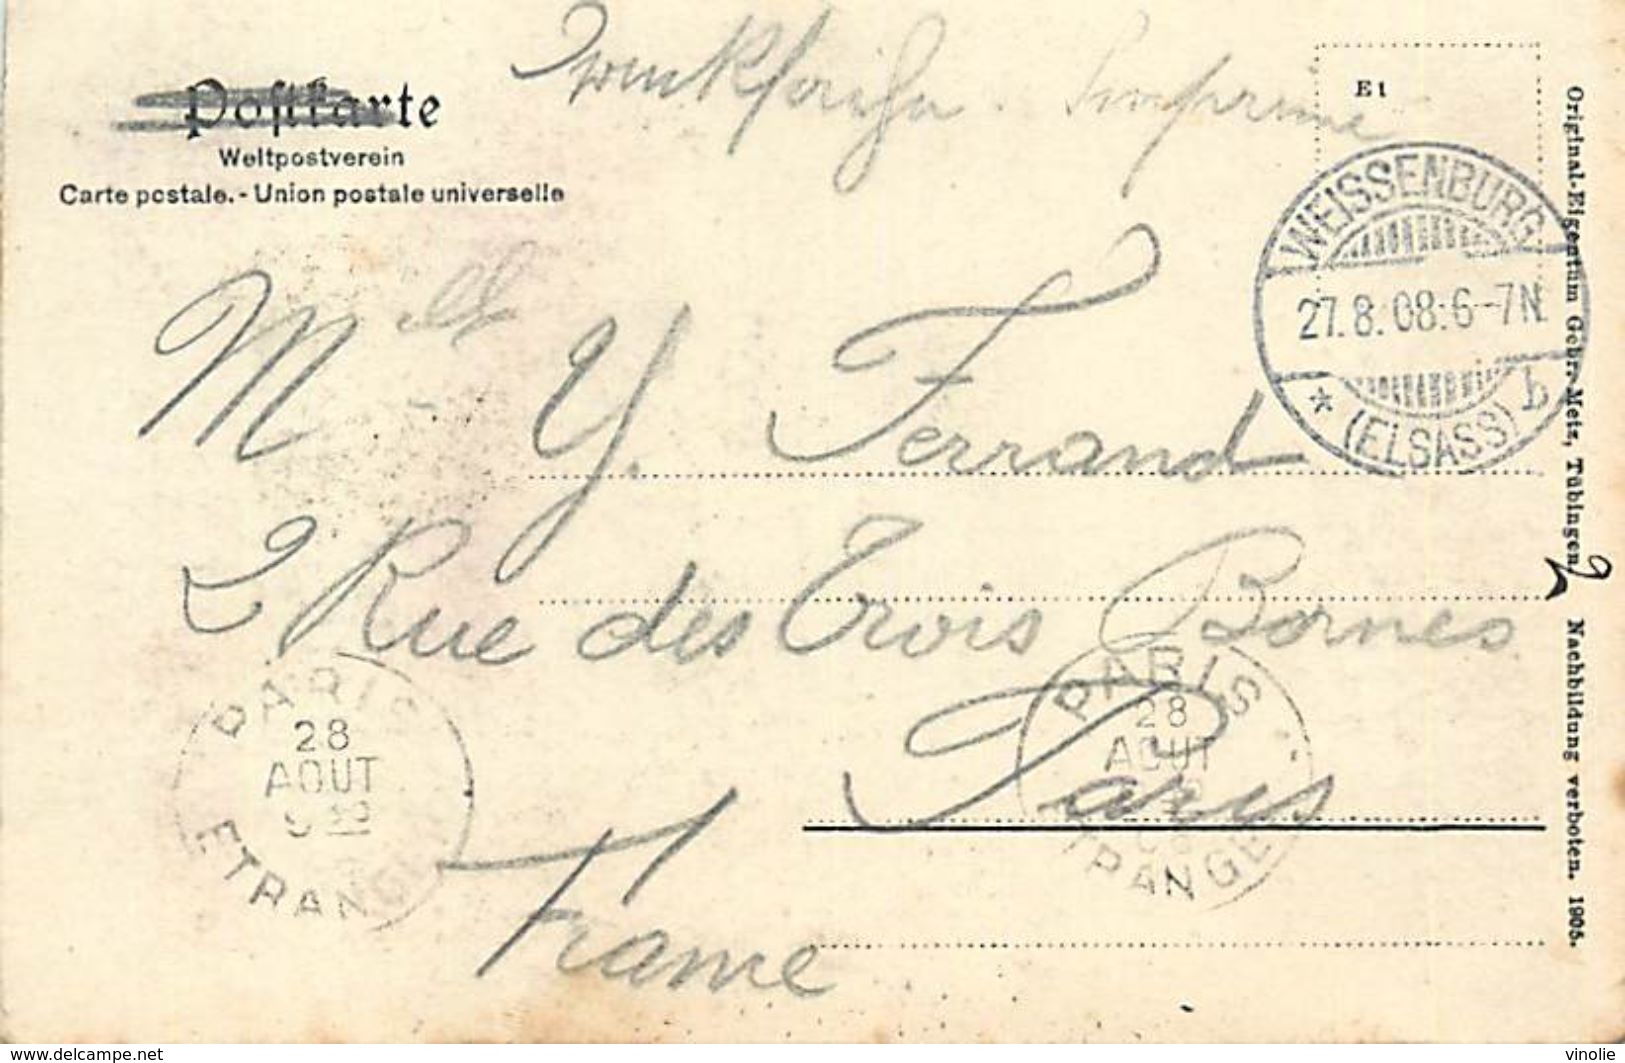 Drucksache. Imprimé
Postkarte
Weltpostverein
Carte postale. - Union postale universelle
E1
WEISSENBURG
27.8.08.6-7N
* (ELSASS) b
Mlle Y. Ferrand
2 Rue des Trois Bornes
Paris
France
PARIS
28
AOUT
ETRANGER
PARIS
28
AOUT
ETRANGER
Original-Eigentum Gebr. Metz, Tübingen. Nachbildung verboten. 1905.
2
www.delcampe.net
vinolie